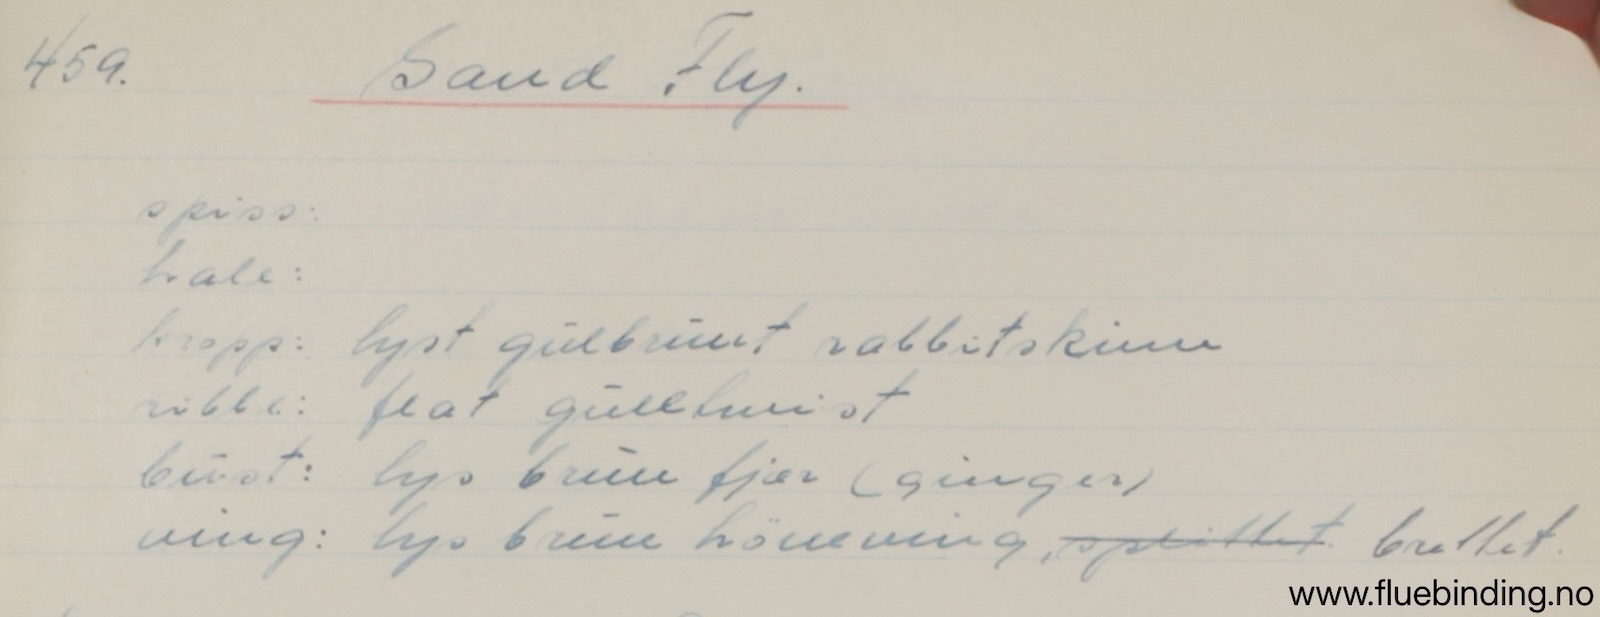 459. Sand Fly.
spiss:
hale:
kropp: lyst gulbrunt rabbitskinn
ribbe: flat gulltwist
bust: lys brun fjær (ginger)
ving: lys brun hönseving, splittet brettet.
www.fluebinding.no